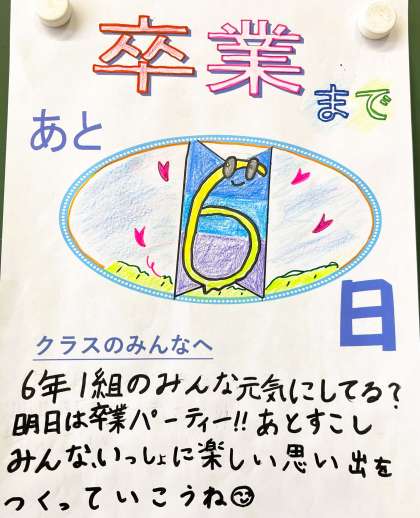 卒業まで
あと
6
日
クラスのみんなへ
6年1組のみんな元気にしてる?
明日は卒業パーティー!!あとすこし
みんな、いっしょに楽しい思い出を
つくっていこうね😊